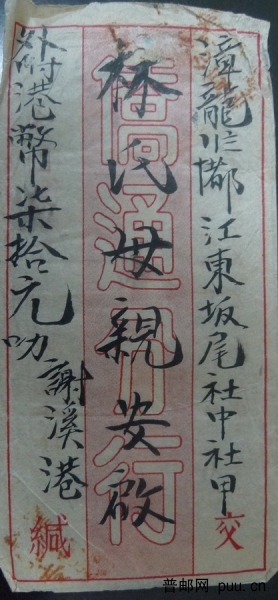 漳龍都江東坂尾社中社甲交
林氏母親安啟
僑通行
外附港幣柒拾元叻
謝溪港緘
普邮网 puu.cn